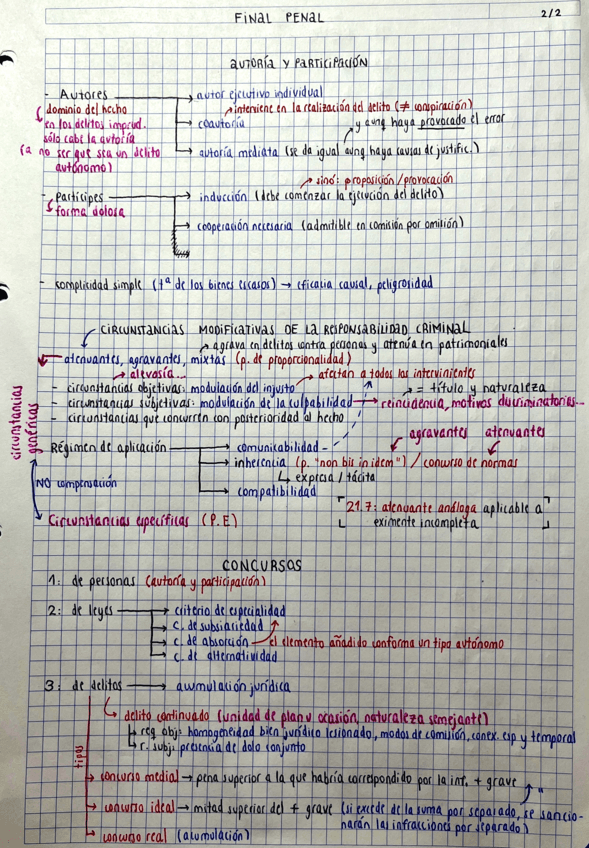 FINAL PENAL 2/2
AUTORÍA Y PARTICIPACIÓN
- Autores → autor ejecutivo individual
dominio del hecho
→ interviene en la realización del delito (≠ conspiración)
en los delitos imprud.
→ coautoría
→ y aunq haya provocado el error
sólo cabe la autoría
(a no ser que sea un delito
autónomo)
→ autoría mediata (se da igual aunq haya causas de justific.)
→ sinó: proposición/provocación
- Partícipes → inducción (debe comenzar la ejecución del delito)
forma dolosa
→ cooperación necesaria (admitible en comisión por omisión)
- complicidad simple (tª de los bienes escasos) → eficacia causal, peligrosidad
CIRCUNSTANCIAS MODIFICATIVAS DE LA RESPONSABILIDAD CRIMINAL
→ agrava en delitos contra personas y atenúa en patrimoniales
atenuantes, agravantes, mixtas (p. de proporcionalidad)
→ alevosía... → afectan a todos los intervinientes
- circunstancias objetivas: modulación del injusto
→ = título y naturaleza
- circunstancias subjetivas: modulación de la culpabilidad → reincidencia, motivos discriminatorios...
- circunstancias que concurren con posterioridad al hecho
circunstancias genéricas
agravantes atenuantes
- Régimen de aplicación → comunicabilidad
→ inherencia (p. "non bis in idem") / concurso de normas
→ expresa / tácita
NO compensación
→ compatibilidad
[21.7: atenuante análoga aplicable a
eximente incompleta]
Circunstancias específicas (P.E)
CONCURSOS
1: de personas (autoría y participación)
2: de leyes → criterio de especialidad
→ c. de subsiariedad
→ c. de absorción → el elemento añadido conforma un tipo autónomo
→ c. de alternatividad
3: de delitos → acumulación jurídica
→ delito continuado (unidad de plan u ocasión, naturaleza semejante)
→ req obj: homogeneidad bien jurídico lesionado, modos de comisión, conex. esp y temporal
→ r. subj: presencia de dolo conjunto
tipos
→ concurso medial → pena superior a la que habría correspondido por la inf. + grave ↗ "
→ concurso ideal → mitad superior del + grave (si excede de la suma por separado, se sancio-
narán las infracciones por separado)
→ concurso real (acumulación)